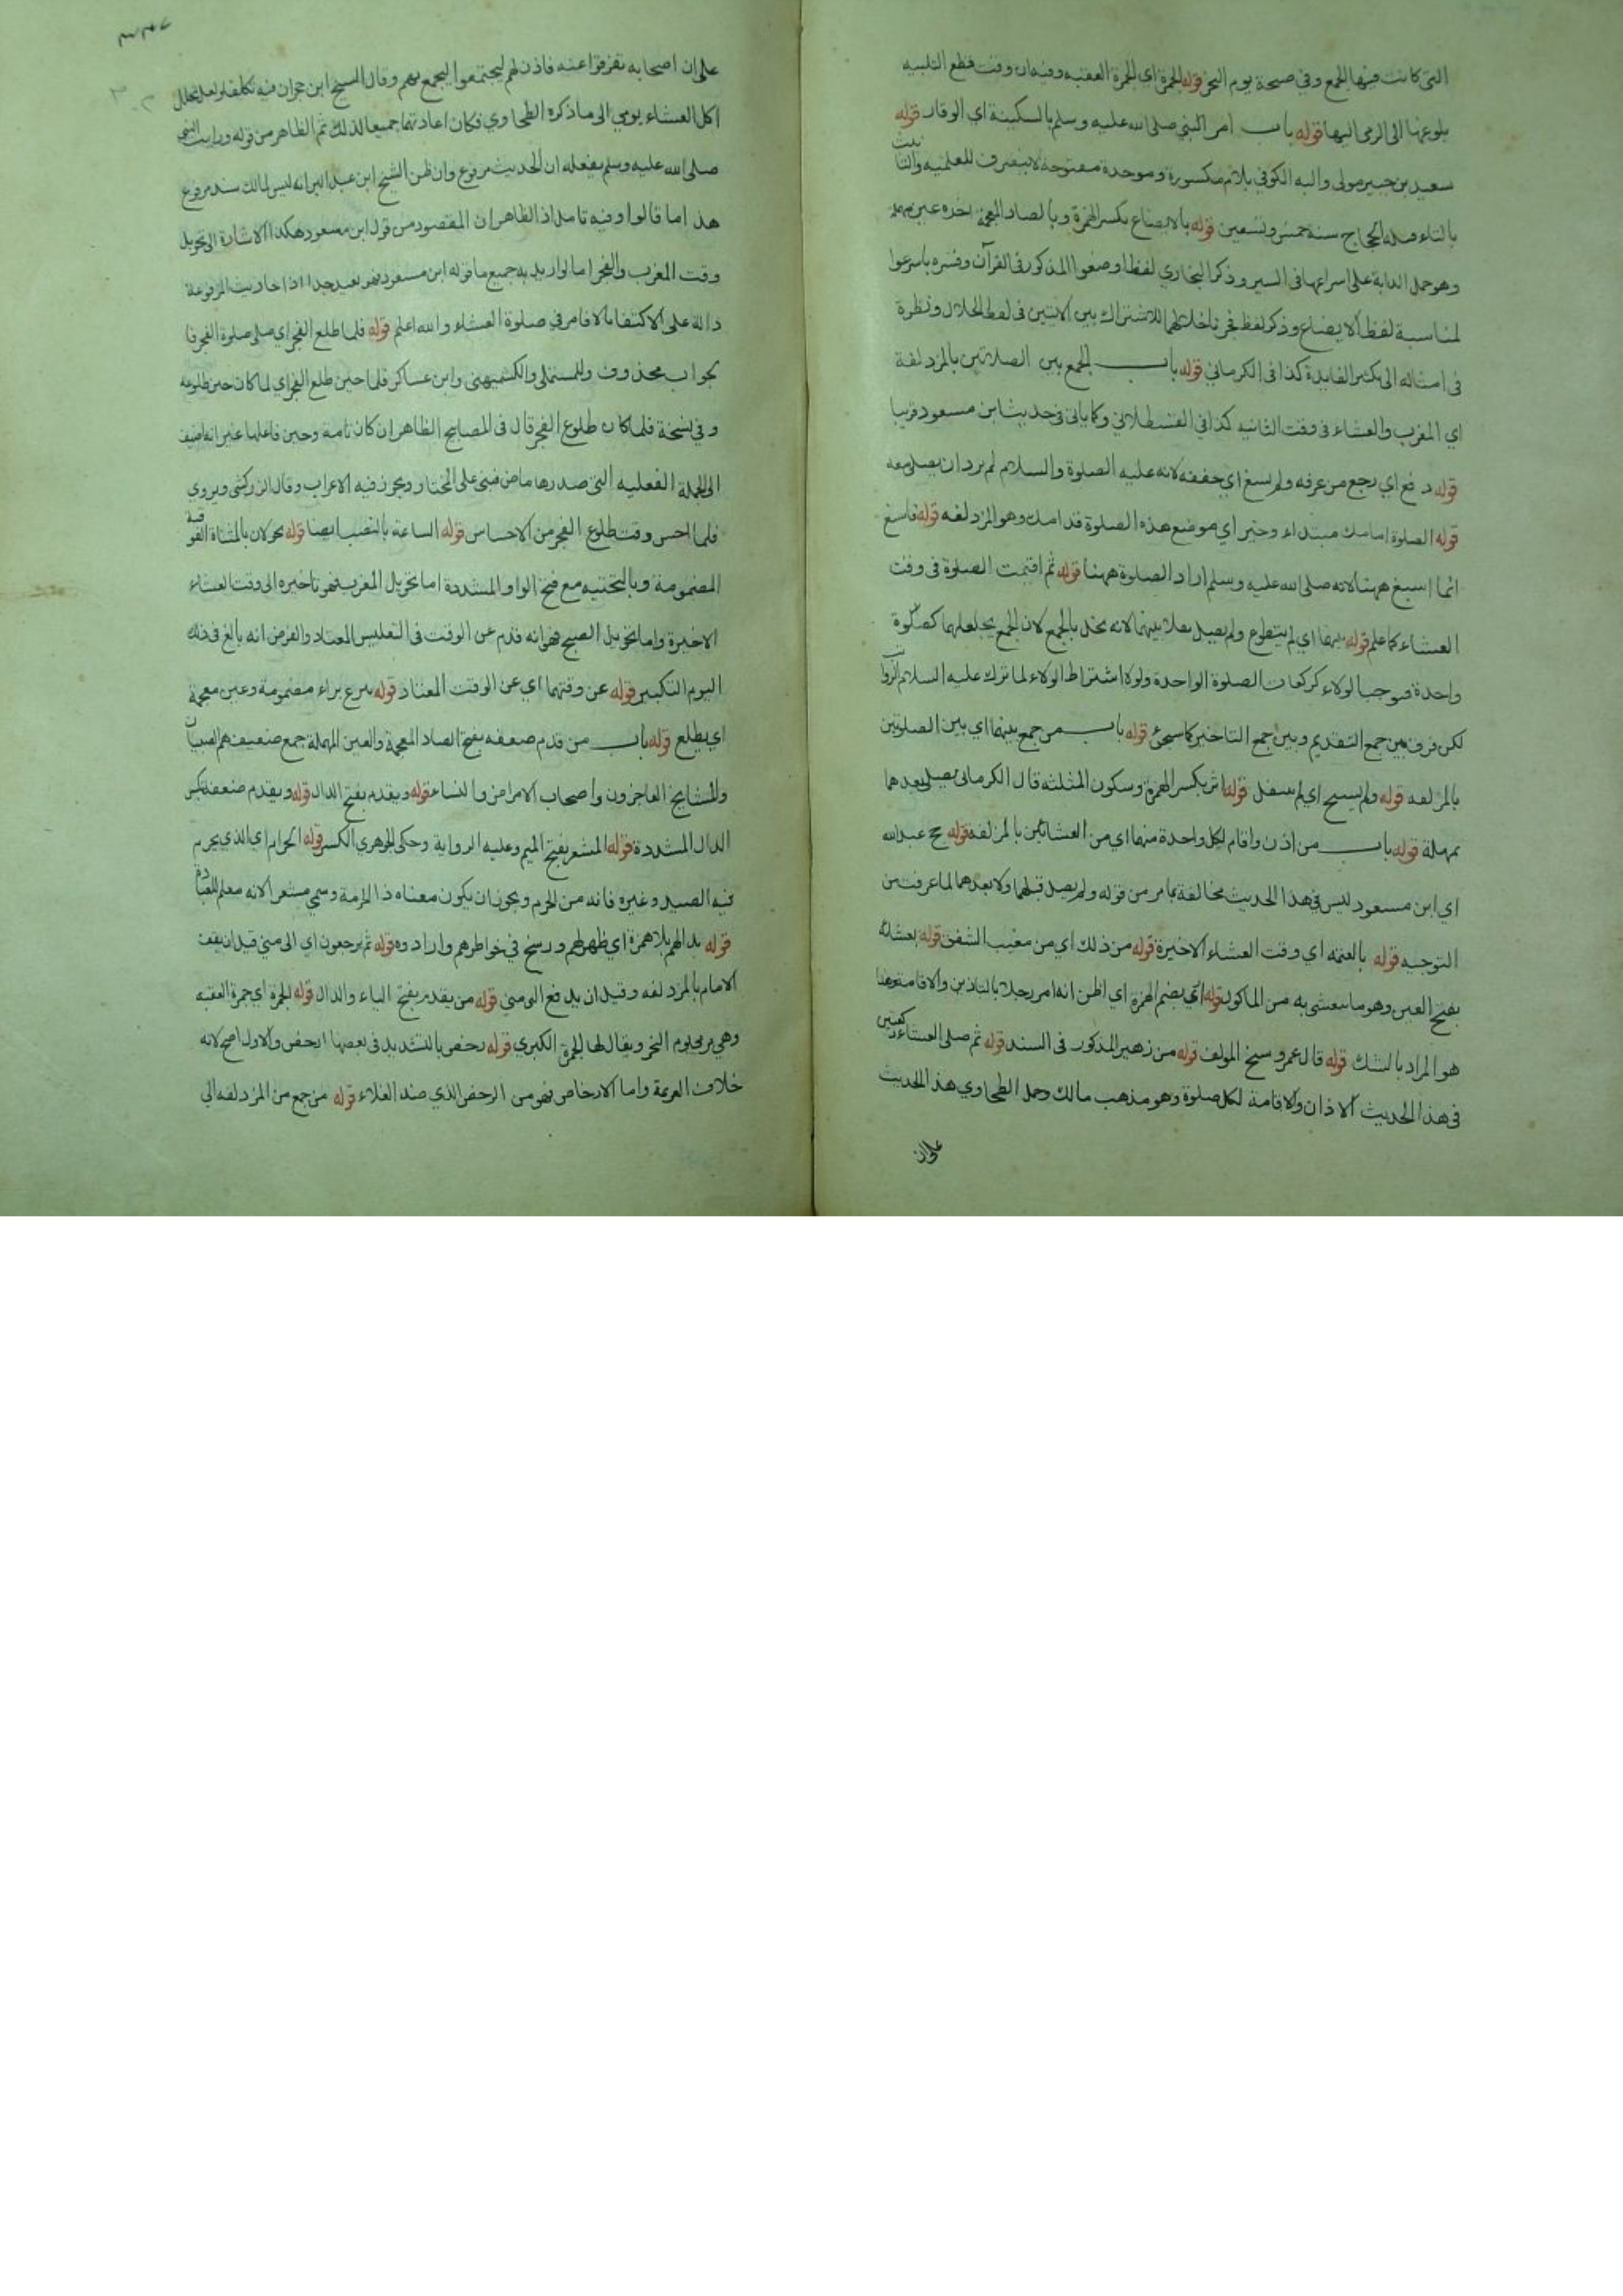 التى كانت فيها الجمع وفي صبيحة يوم النحر قوله الجمرة اى الجمرة العقبه وفيه ان وقت قطع التلبيه
بلوغها الى الرمى اليها قوله باب امر النبي صلى الله عليه وسلم بالسكينة اي الوقار قوله
سعيد بن جبير مولى والبه الكوفي بلام مكسورة وموحدة مفتوحة لا ينصرف للعلميه والتانيث
بالتاء قتله الحجاج سنة خمس وتسعين قوله بالايضاع بكسر الهمزة وبالضاد المعجمة اخره عين مهملة
وهو حمل الدابة على اسراعها في السير وذكر البخاري لفظ اوضعوا المذكور في القرآن وفسره باسرعوا
لمناسبة لفظ الايضاع وذكر لفظ فجرنا خلالهما للاشتراك بين الآيتين فى لفظ الخلال ونظره
فى امثاله الى تكثير الفايدة كذا فى الكرماني قوله باب الجمع بين الصلاتين بالمزدلفة
اي المغرب والعشاء فى وقت الثانيه كذا في القسطلاني وكما ياتى فى حديث ابن مسعود قريبا
قوله دفع اي رجع من عرفه ولم يسبغ اي خففه لانه عليه الصلوة والسلام لم يرد ان يصلى معه
قوله الصلوة امامك مبتداء وخبر اي موضع هذه الصلوة قدامك وهو المزدلفه قوله فاسبغ
انما اسبغ ههنا لانه صلى الله عليه وسلم اراد الصلوة ههنا قوله ثم اقيمت الصلوة فى وقت
العشاء كما علم قوله بينهما اي لم يتطوع ولم يصل بينهما لانه يخل بالجمع لان الجمع يجعلهما كصلوة
واحدة فوجب الولاء كركعات الصلوة الواحدة ولولا اشتراط الولاء لما ترك عليه السلام الرواتب
لكن فرق بين جمع التقديم وبين جمع التاخير كما سيجئ قوله باب من جمع بينهما اي بين الصلوتين
بالمزلفه قوله ولم يسبح اي لم يتنفل قوله اثر بكسر الهمزة وسكون المثلثه قال الكرمانى يصلى بعدهما
بمهملة قوله باب من اذن واقام لكل واحدة منهما اي من العشائين بالمزلفة قوله حج عبد الله
اي ابن مسعود ليس في هذا الحديث مخالفة بما مر من قوله ولم يصل قبلهما ولا بعدهما لما عرفت من
التوجيه قوله بالعتمه اي وقت العشاء الاخيرة قوله من ذلك اي من مغيب الشفق قوله بعشائه
بفتح العين وهو ما يتعشى به من الماكول قوله أرى بضم الهمزة اي اظن انه امر رجلا بالتاذين والاقامة وهذا
هو المراد بالشك قوله قال عمرو شيخ المولف قوله من زهير المذكور فى السند قوله ثم صلى العشاء ركعتين
فى هذا الحديث الاذان والاقامة لكل صلوة وهو مذهب مالك وحمل الطحاوي هذ الحديث
على ان
على ان اصحابه تفرقوا عنه فاذن لهم ليجتمعوا ليجمع بهم وقال الشيخ ابن حجر ان فيه تكلفا ولعل تخلل
اكل العشاء يومي الى ما ذكره الطحاوي فكان اعادتهما جميعا لذلك ثم الظاهر من قوله ورايت النبي
صلى الله عليه وسلم يفعله ان الحديث مرفوع وان ظن الشيخ ابن عبد البر انه ليس لمالك سند مرفوع
هذ اما قالوا وفيه تامل اذ الظاهر ان المقصود من قول ابن مسعود هكذا الاشارة الى تحويل
وقت المغرب والفجر اما لو اريد به جميع ما قوله ابن مسعود فهو بعيد جدا اذ احاديث المرفوعة
دالة على الاكتفاء بالاقامر في صلوة العشاء والله اعلم قوله فلما طلع الفجر اي صلى صلوة الفجر فا
لجواب محذوف وللمستملى والكشميهنى وابن عساكر فلما حين طلع الفجر اي لما كان حين طلوعه
وفي نسخة فلما كان طلوع الفجر قال فى المصابيح الظاهر ان كان تامة وحين فاعلها غير انه اضيف
الى الجملة الفعليه التى صدرها ماض فبنى على المختار ويجوز فيه الاعراب وقال الزركشى ويروى
فلما احس وقت طلوع الفجر من الاحساس قوله الساعة بالنصب ايضا قوله تحولان بالمثناة الفوقية
المضمومة وبالتحتيه مع فتح الواو المشددة اما تحويل المغرب فهو تاخيره الى وقت العشاء
الاخيرة واما تحويل الصبح فهو انه قدم عن الوقت فى التغليس المعتاد والغرض انه بالغ فى ذلك
اليوم التكبير قوله عن وقتهما اي عن الوقت المعتاد قوله يبزغ براء مضمومة وغين معجمة
اي يطلع قوله باب من قدم ضعفه بفتح الضاد المعجمة والعين المهملة جمع ضعيف هم الصبيان
والمشايخ العاجزون واصحاب الامراض والنساء قوله ويقدم بفتح الدال قوله ويقدم ضعفة بكسر
الدال المشددة قوله المشعر بفتح الميم وعليه الرواية وحكى الجوهري الكسر قوله الحرام اي الذي يحرم
فيه الصيد وغيره فانه من الحرم ويجوز ان يكون معناه ذا الحرمة وسمي مشعرا لانه معلم للعبادة
قوله بدا لهم بلا همزة اي ظهر لهم ورسخ في خواطرهم وارادوه قوله ثم يرجعون اي الى منى قبل ان يقف
الامام بالمزدلفه وقبل ان يدفع الى منى قوله من يقدم بفتح الياء والدال قوله الجمرة اي جمرة العقبه
وهي يرمى يوم النحر ويقال لها الجمرة الكبري قوله رخص بالتشديد فى بعضها ارخص والاول اصح لانه
خلاف العزيمة واما الارخاص فهو من الرخص الذي ضد الغلاء قوله من جمع من المزدلفه الى